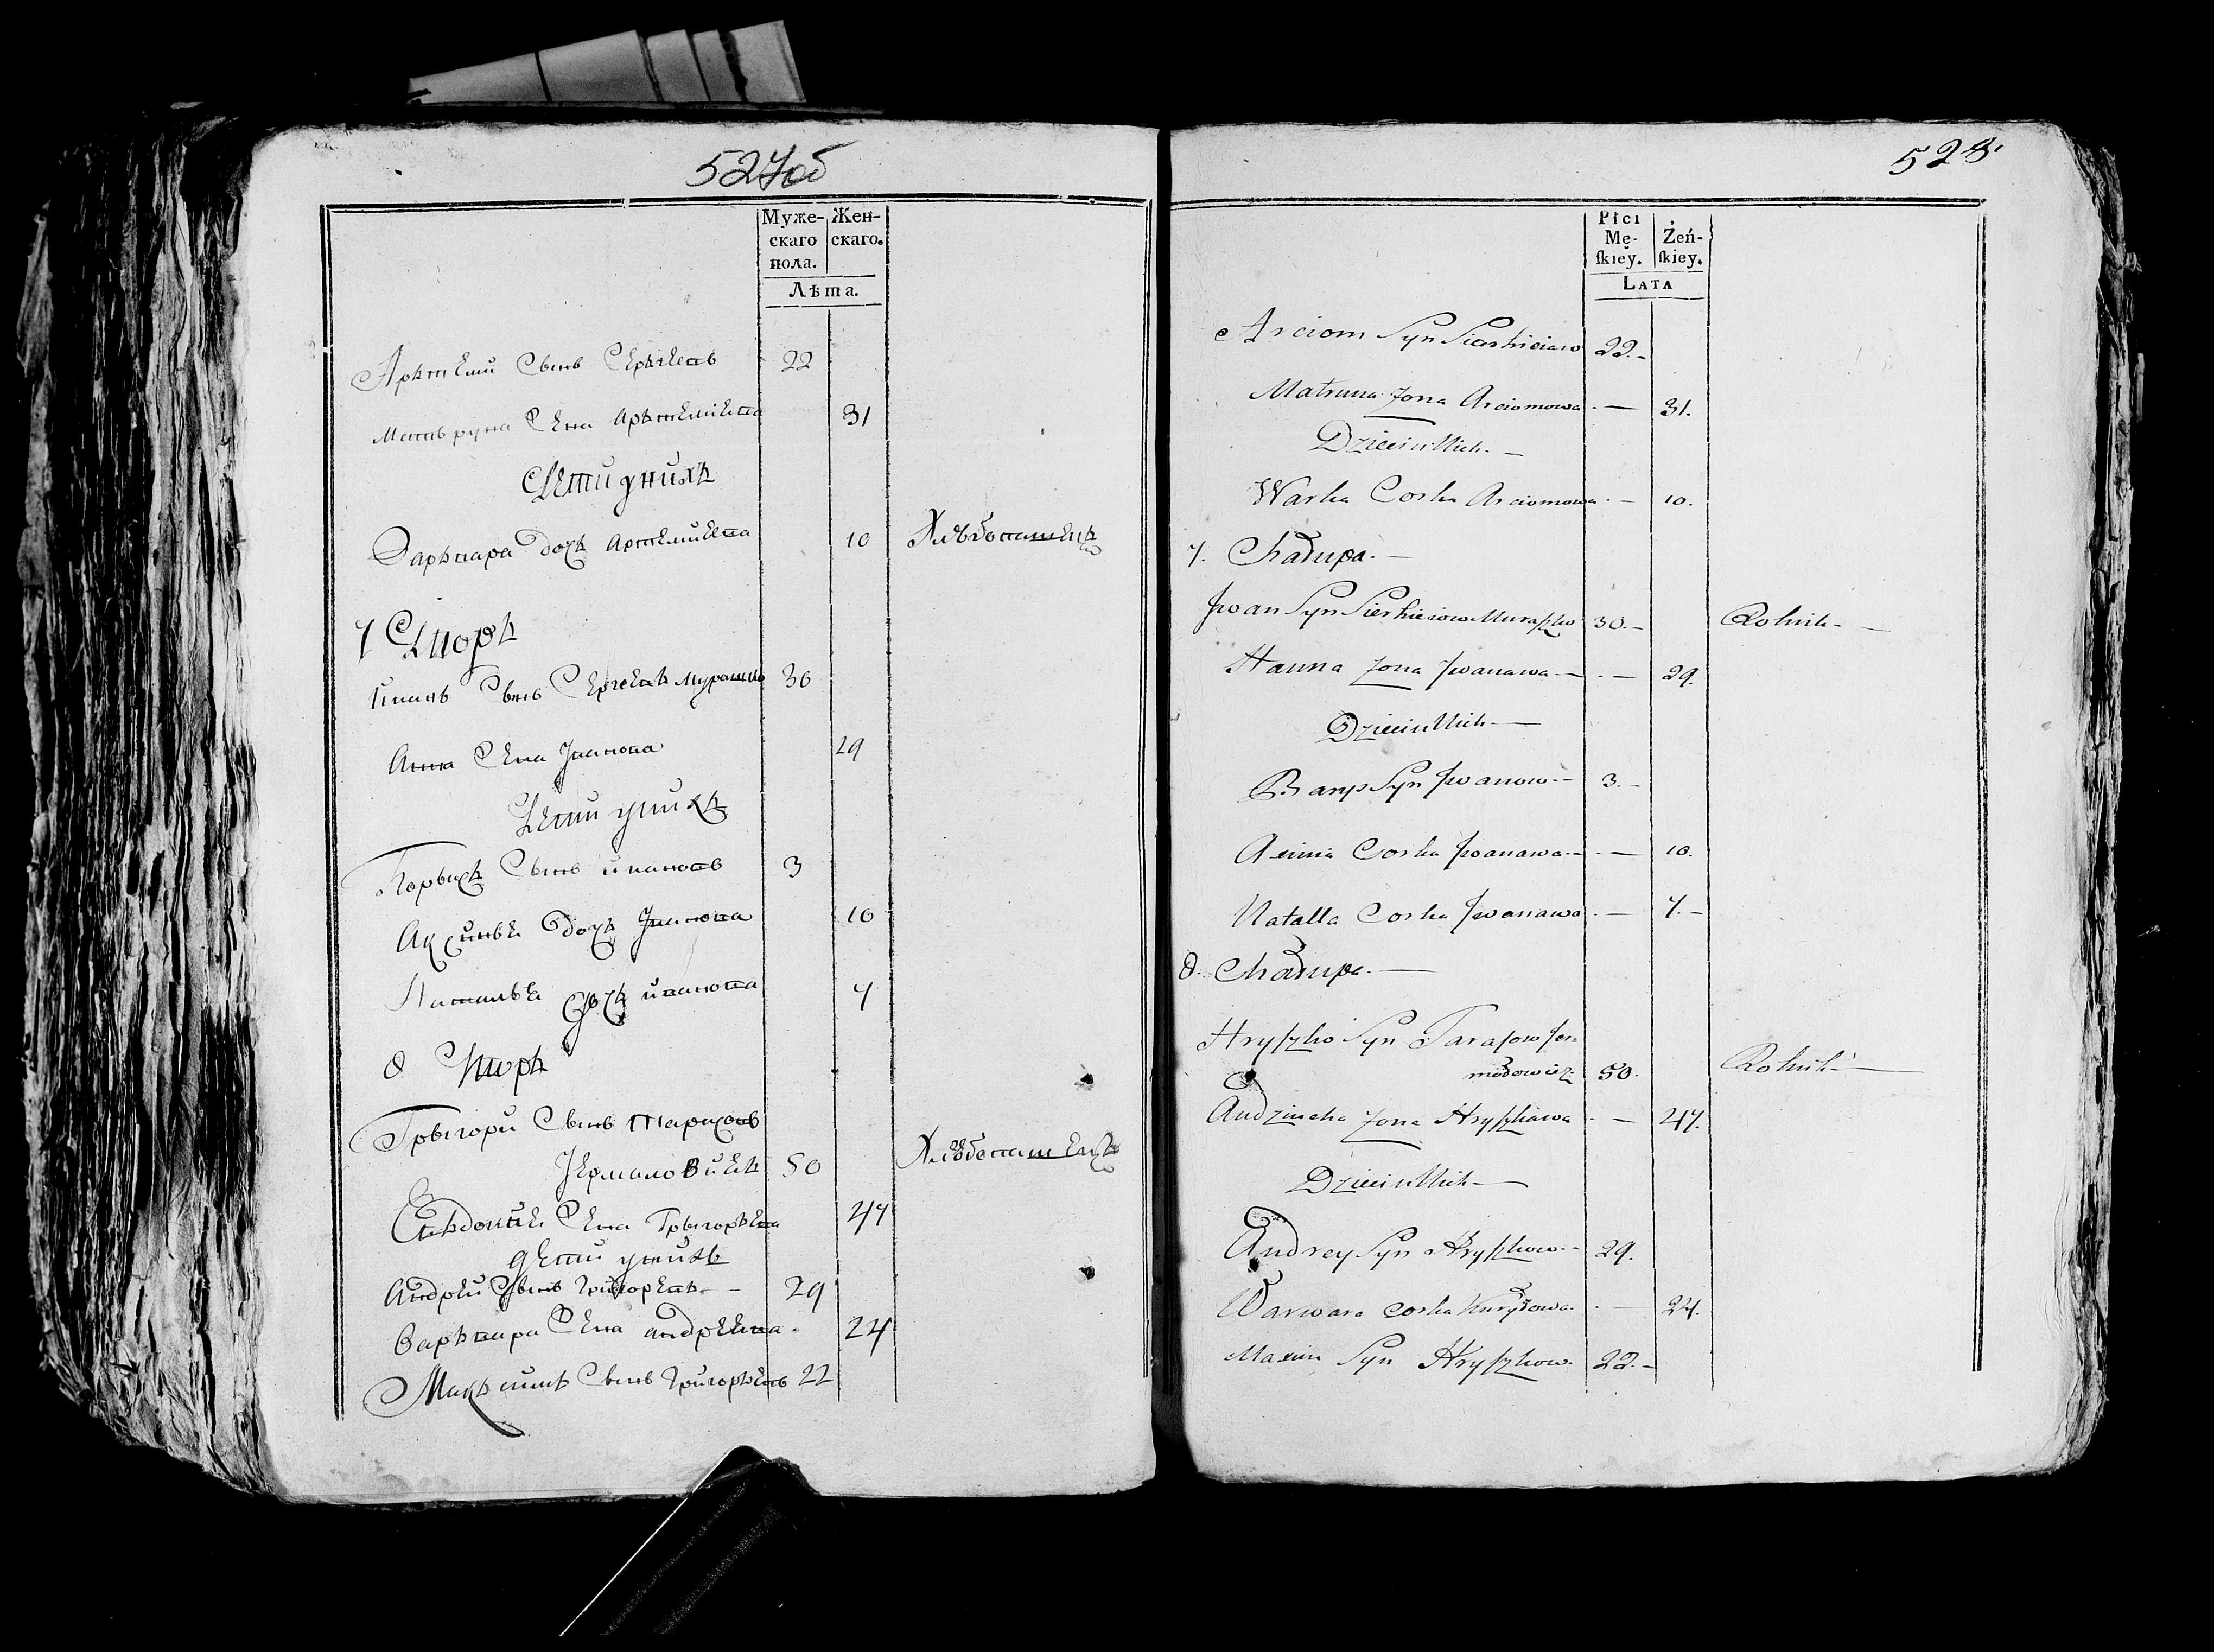 527об
Муже- Жен-
скаго скаго.
пола.
Лѣта.
Артемій Сынъ Сергѣевъ 22
Матруна Жена Артеміева 31
Дети у нихъ
Варвара дочь Артеміева 10 Хлѣбопашецъ
7 Дворъ
Иванъ Сынъ Сергѣевъ Мурашко 30
Анна Жена Иванова 29
Дети у нихъ
Сынъ Ивановъ 3
Аксинья дочь Иванова 10
Наталья дочь Иванова 7
8 Дворъ
Григори Сынъ Тарасовъ
50 Хлѣбопашецъ
Евдокия Жена Григорьева 47
Дети у нихъ
Андрей Сынъ Григорьевъ 29
Варвара Жена Андреева 24
Максимъ Сынъ Григорьевъ 22
528
Płci
Mę- Żeń-
ſkiey. ſkiey.
LATA
Arciom Syn Sierhieiow 22.
Matruna Zona Arciomowa 31.
Dzieci u Nich
Warka Corka Arciomowa 10.
7. Chałupa.
Jwan Syn Sierhieiow Muraſzko 30. Rolnik
Hanna Zona Jwanawa 29.
Dzieci u Nich
Syn Jwanow 3.
Axinia Corka Jwanawa 10.
Natalla Corka Jwanawa 7.
8. Chałupa.
Hryſzko Syn Taraſow Jer-
mołowicz 50. Rolnik
Audziucha Zona Hryſzkawa 47.
Dzieci u Nich
Andrey Syn Hryſzkow 29.
Warwara Corka 24.
Maxim Syn Hryſzkow 22.